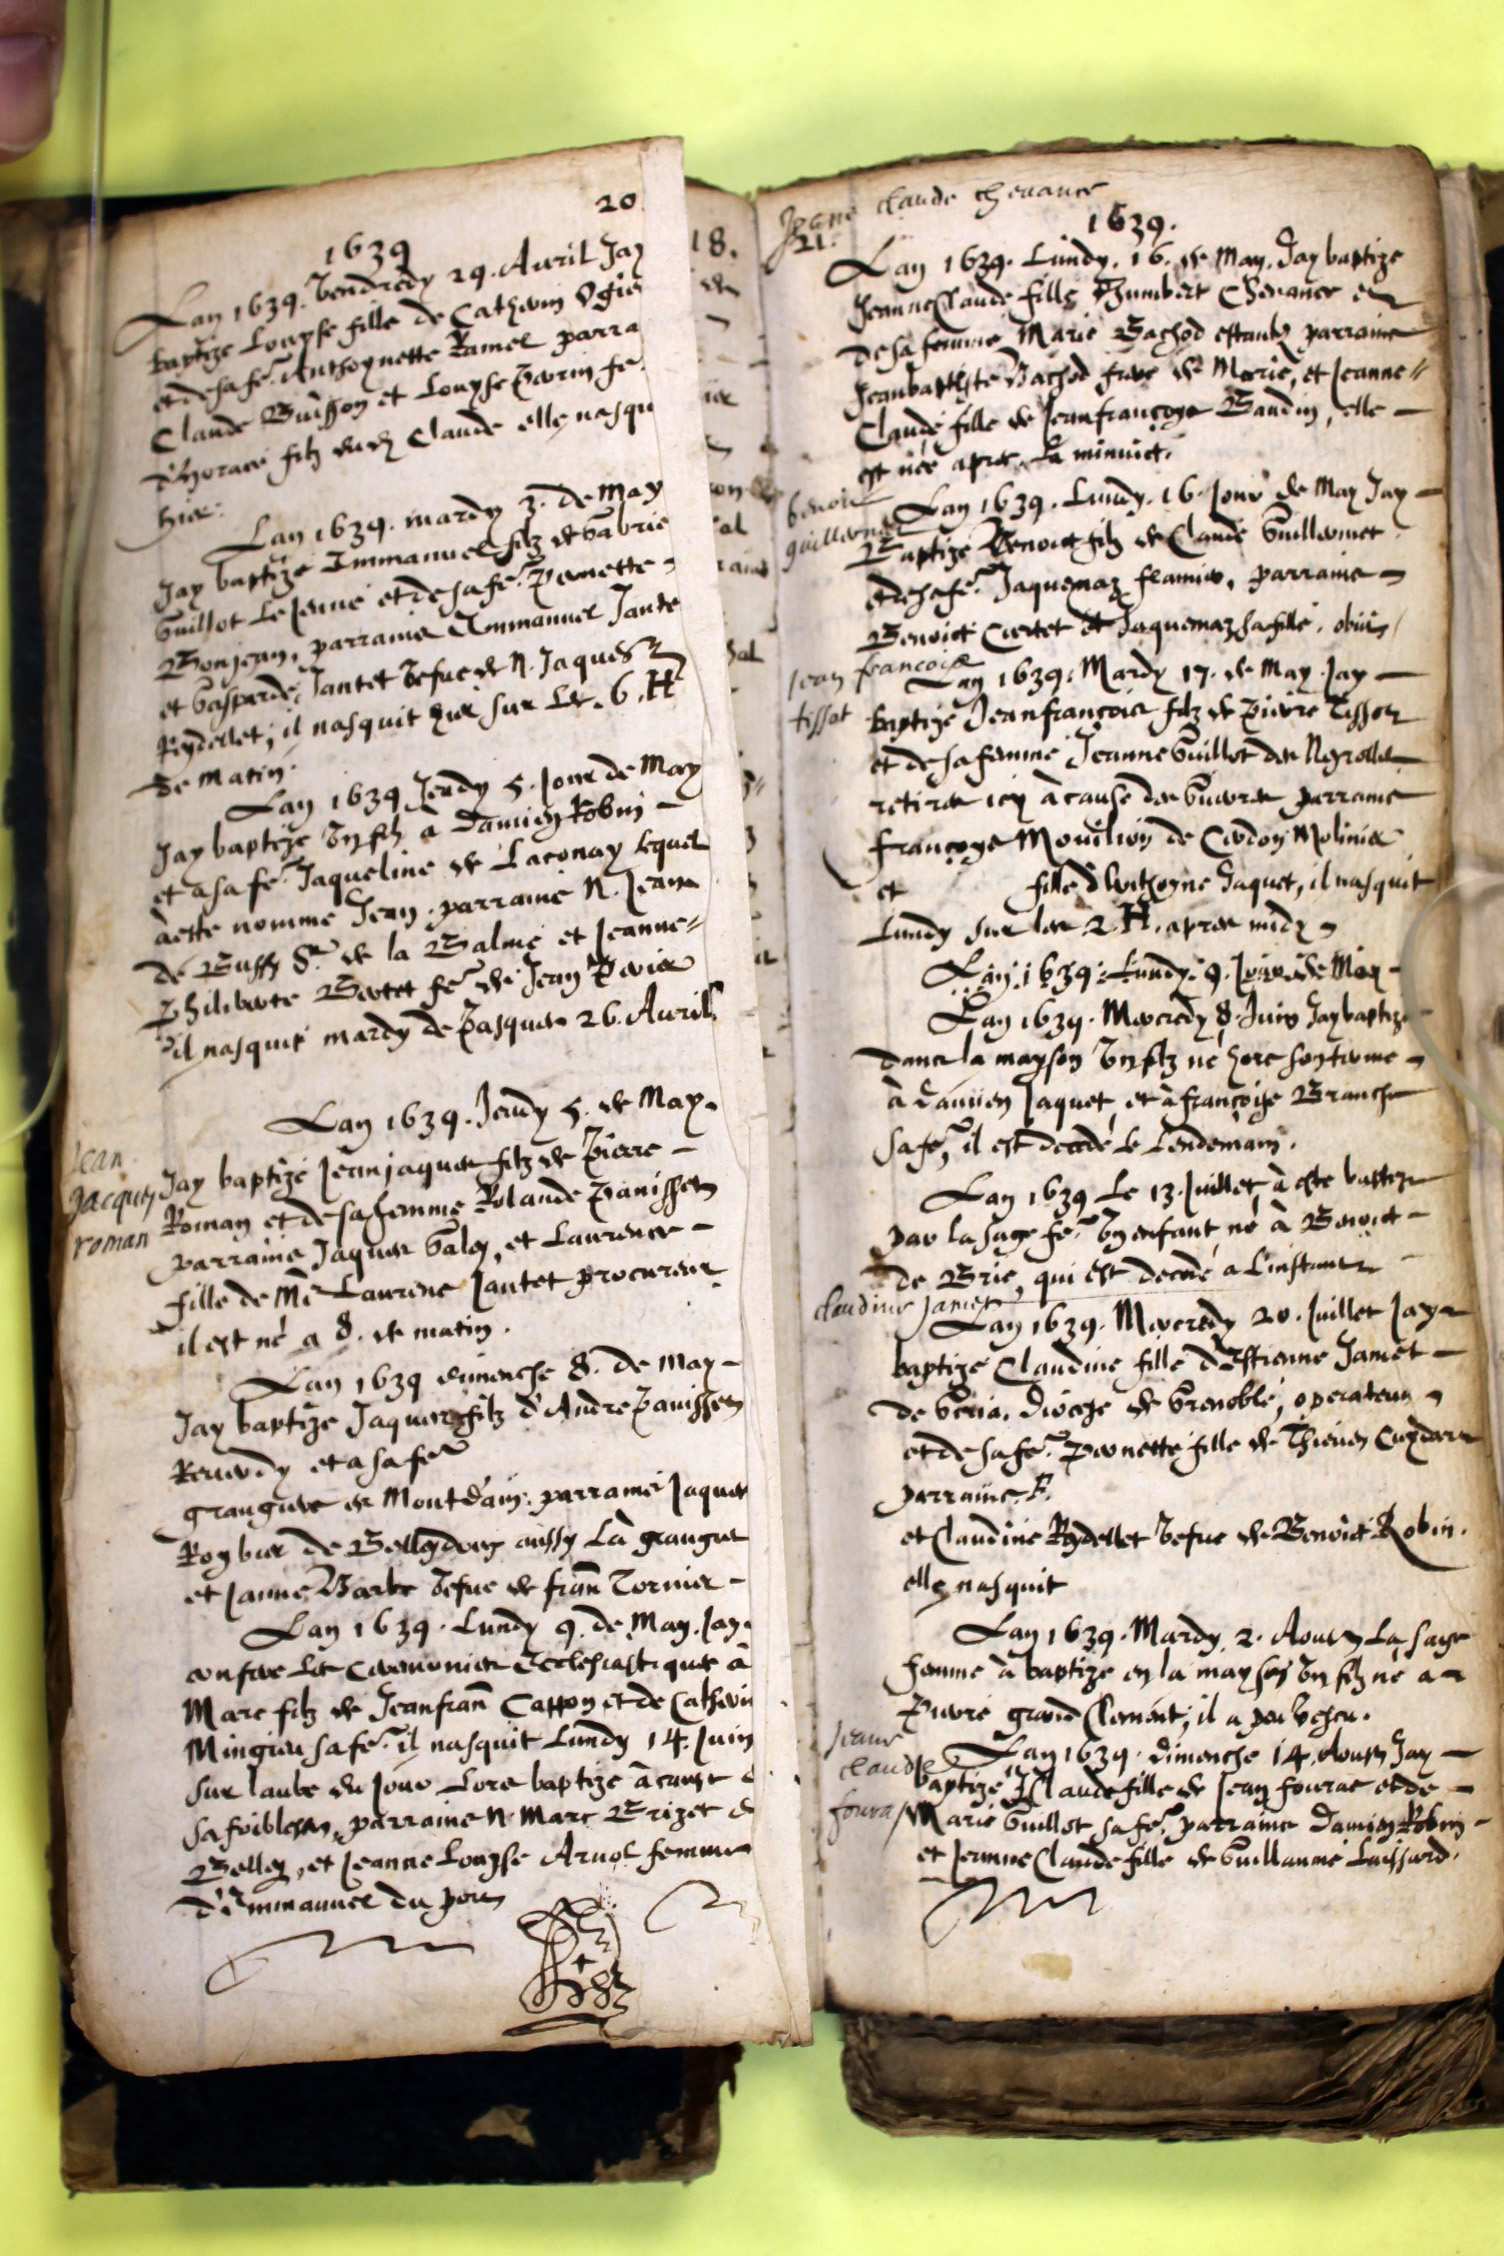 20
1639
Lan 1639. Vendredy 29. Auril Jay
baptize Louyse fille de Catherin Ogier
et de sa fe. Anthoynette Ramel parra
Claude Buisson et Louyse Perrin fe.
d'horace filz dud Claude elle nasqu
hier.
Lan 1639. mardy 3. de May
Jay baptize Immanuel filz de Gabrie
Guillot le Jeune et de sa fe. Pernette
Bonjean, parrains Immanuel Jante
et Gasparde Jantet vefue de N. Jaques
Reydellet; il nasquit hier sur les 6. H
de matin.
Lan 1639 Jeudy 5. Jour de May
Jay baptize vn filz a Damien Robin
et a sa fe. Jaqueline de Laconay lequel
a este nomme Jean. parrains N. Jean
de Bussy Sr. de la Balme et Jeanne
Philiberte Bertet fe. de Jean Perier
il nasquit mardy de Pasques 26. Auril
Lan 1639. Jeudy 5. de May.
Jean
Jacques
roman
Jay baptizé Jeanjaques filz de Pierre
Roman et de sa femme Rolande Panisset
parrains Jaques Galey, et Laurence
fille de Me Laurens Jantet procureur
il est né a 8. de matin.
Lan 1639 dimenche 8. de May
Jay baptize Jaques filz d'Andre Panisset
et a sa fe
grangier de Montdain: parrains Jaques
de Belleydoux aussy la granger
et Janne Barbe vefue de fran Tornier
Lan 1639. Lundy 9. de May. Jay
confere les ceremonies Ecclesiastiques à
Marc filz de Jeanfran Cappon et de Catherin
Mingieu sa fe. il nasquit Lundy 14. Juin
sur laube du jour lors baptize à cause d
sa foiblesse, parrains N. Marc Brizet d
Belley, et Jeanne Louyse Arnol femme
d'Immanuel du port
18.
Jeane claude cheuance
21.
1639.
Lan 1639. Lundy. 16. de May. Jay baptize
JeanneClaude fille d'humbert Cheuance et
de sa femme Marie Bachod estants parrains
Jeanbaptyste Bachod frere de Marie, et Jeanne
Claude fille de Jeanfrançoys Gaudin, elle
est née apres la minuict.
benoit
guillermet
Lan 1639. Lundy. 16. Jour de May Jay
Baptizé Benoit filz de Claude Guillermet
et de sa fe. Jaquemaz, parrains
Benoict Cartet et Jaquemaz sa fille. obiit
Jean francois
tissot
Lan 1639. Mardy 17. de May. Jay
baptize Jeanfrançois filz de Pierre Tissot
et de sa femme Jeanne Guillot des Negrolles
retires icy à cause des guerres parrains
Françoys de Cerdon Molinier
et fille d'Anthoyne Jaquet, il nasquit
Lundy sur les 2. H. apres midy
Lan 1639. Lundy. 9. Jour de May
Lan 1639. Mercredy 8. Juin Jay baptize
dans la mayson vn filz né hors son terme
à Damien Jaquet, et à françoise Branche
sa fe, il est decedé le lendemain.
Lan 1639 Le 13. Juillet à este baptize
par la sage fe. vn enfant né à Benoict
de Brie, qui est decedé a l'instant
claudine Jamet
Lan 1639. Mercredy 20. Juillet Jay
baptizé Claudine fille d'Estienne Jamet
de, diocese de Grenoble, operateur
et de sa fe. Pernette fille de Thieuen
parrains.
et Claudine Reydellet vefue de Benoict Robin.
elle nasquit
Lan 1639. Mardy. 2. Aoust La sage
femme à baptize en la mayson vn filz né a
Pierre grand Clement; il a peu vescu.
Jeane
claude
fouras
Lan 1639. dimenche 14. Aoust Jay
baptizé J. Claude fille de Jean fourat et de
Marie Guillot sa fe. parrains Damien Robin
et Jeanne Claude fille de Guillaume Luissard.